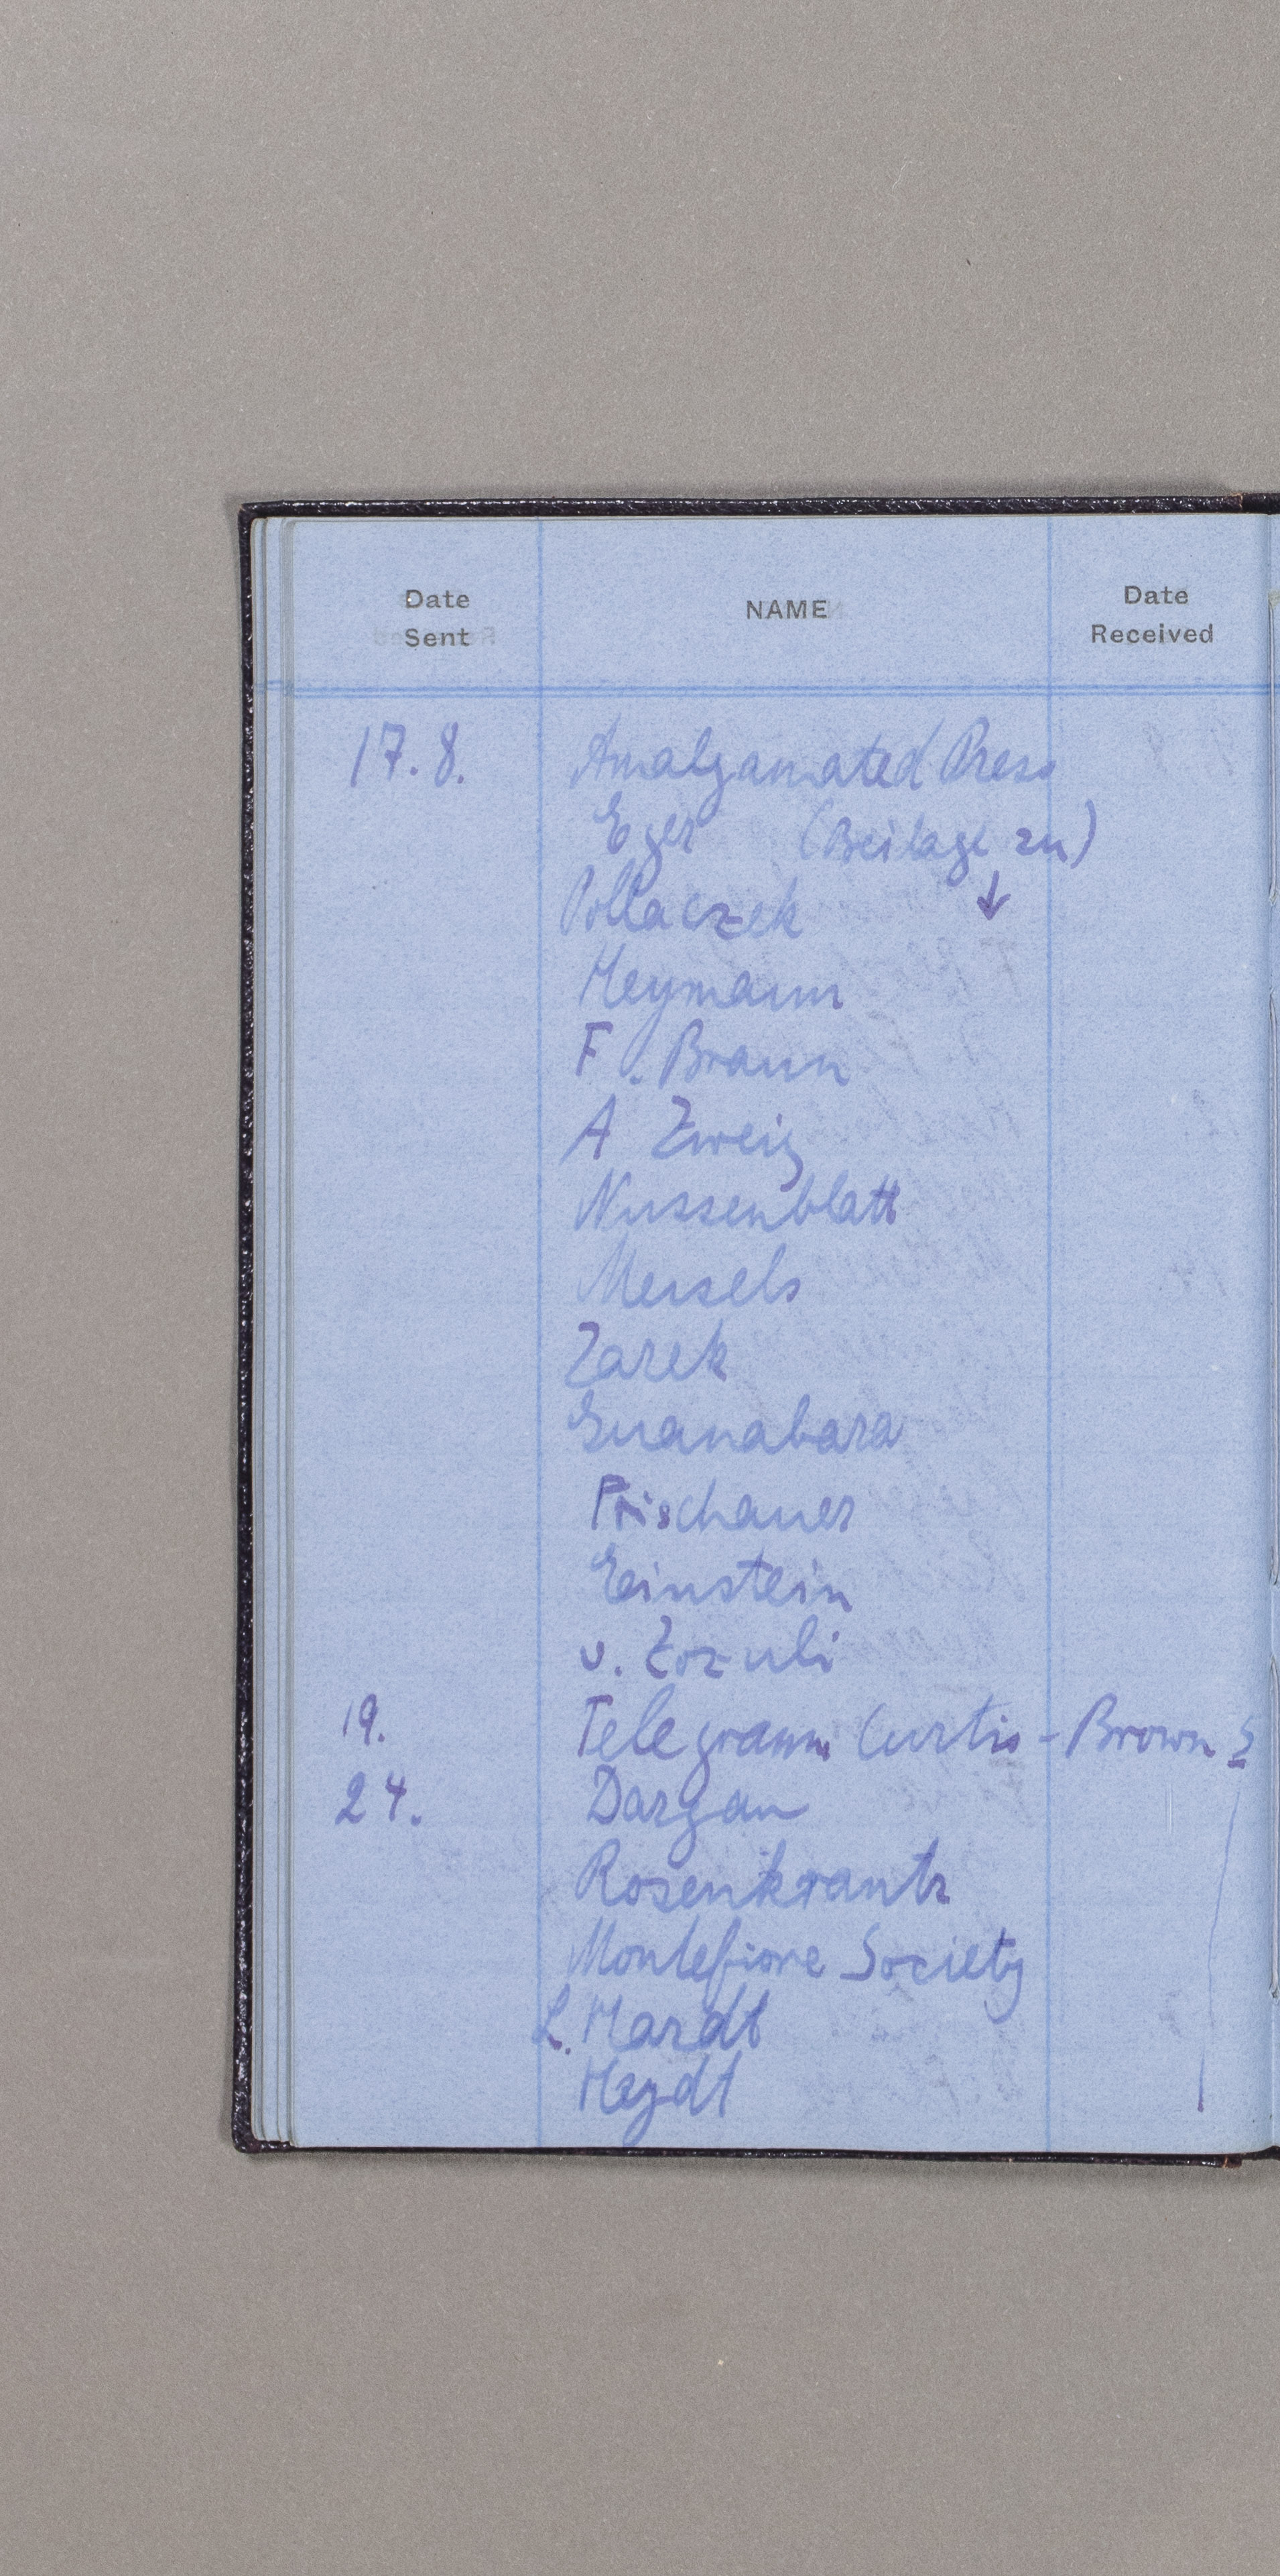 Date Sent NAME Date Received
17.8. Amalgamated Press
Eger (Beilage zu)
Pollaczek ↓
Heymann
F. Braun
A Zweig
Nussenblatt
Meisels
Zarek
Guanabara
Frischauer
Einstein
v. Zozuli
19. Telegramm Curtis-Brown
24. Dargan
Rosenkrantz
Montefiore Society
L. Hardt
Heydt